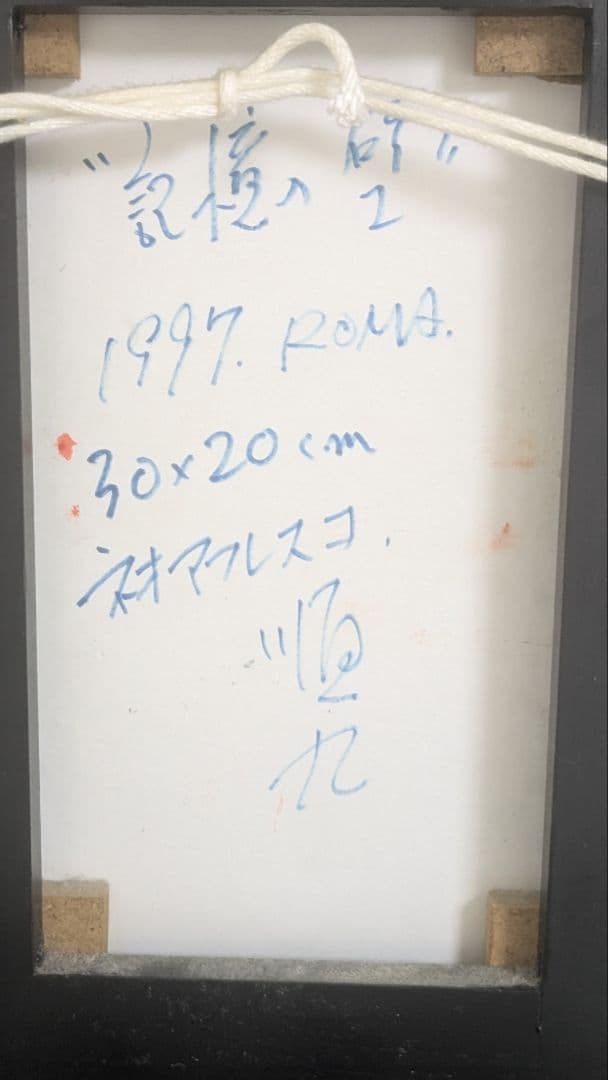 "記憶の壁"
1997. ROMA.
30×20cm
ネオアフレスコ.
"恒
九